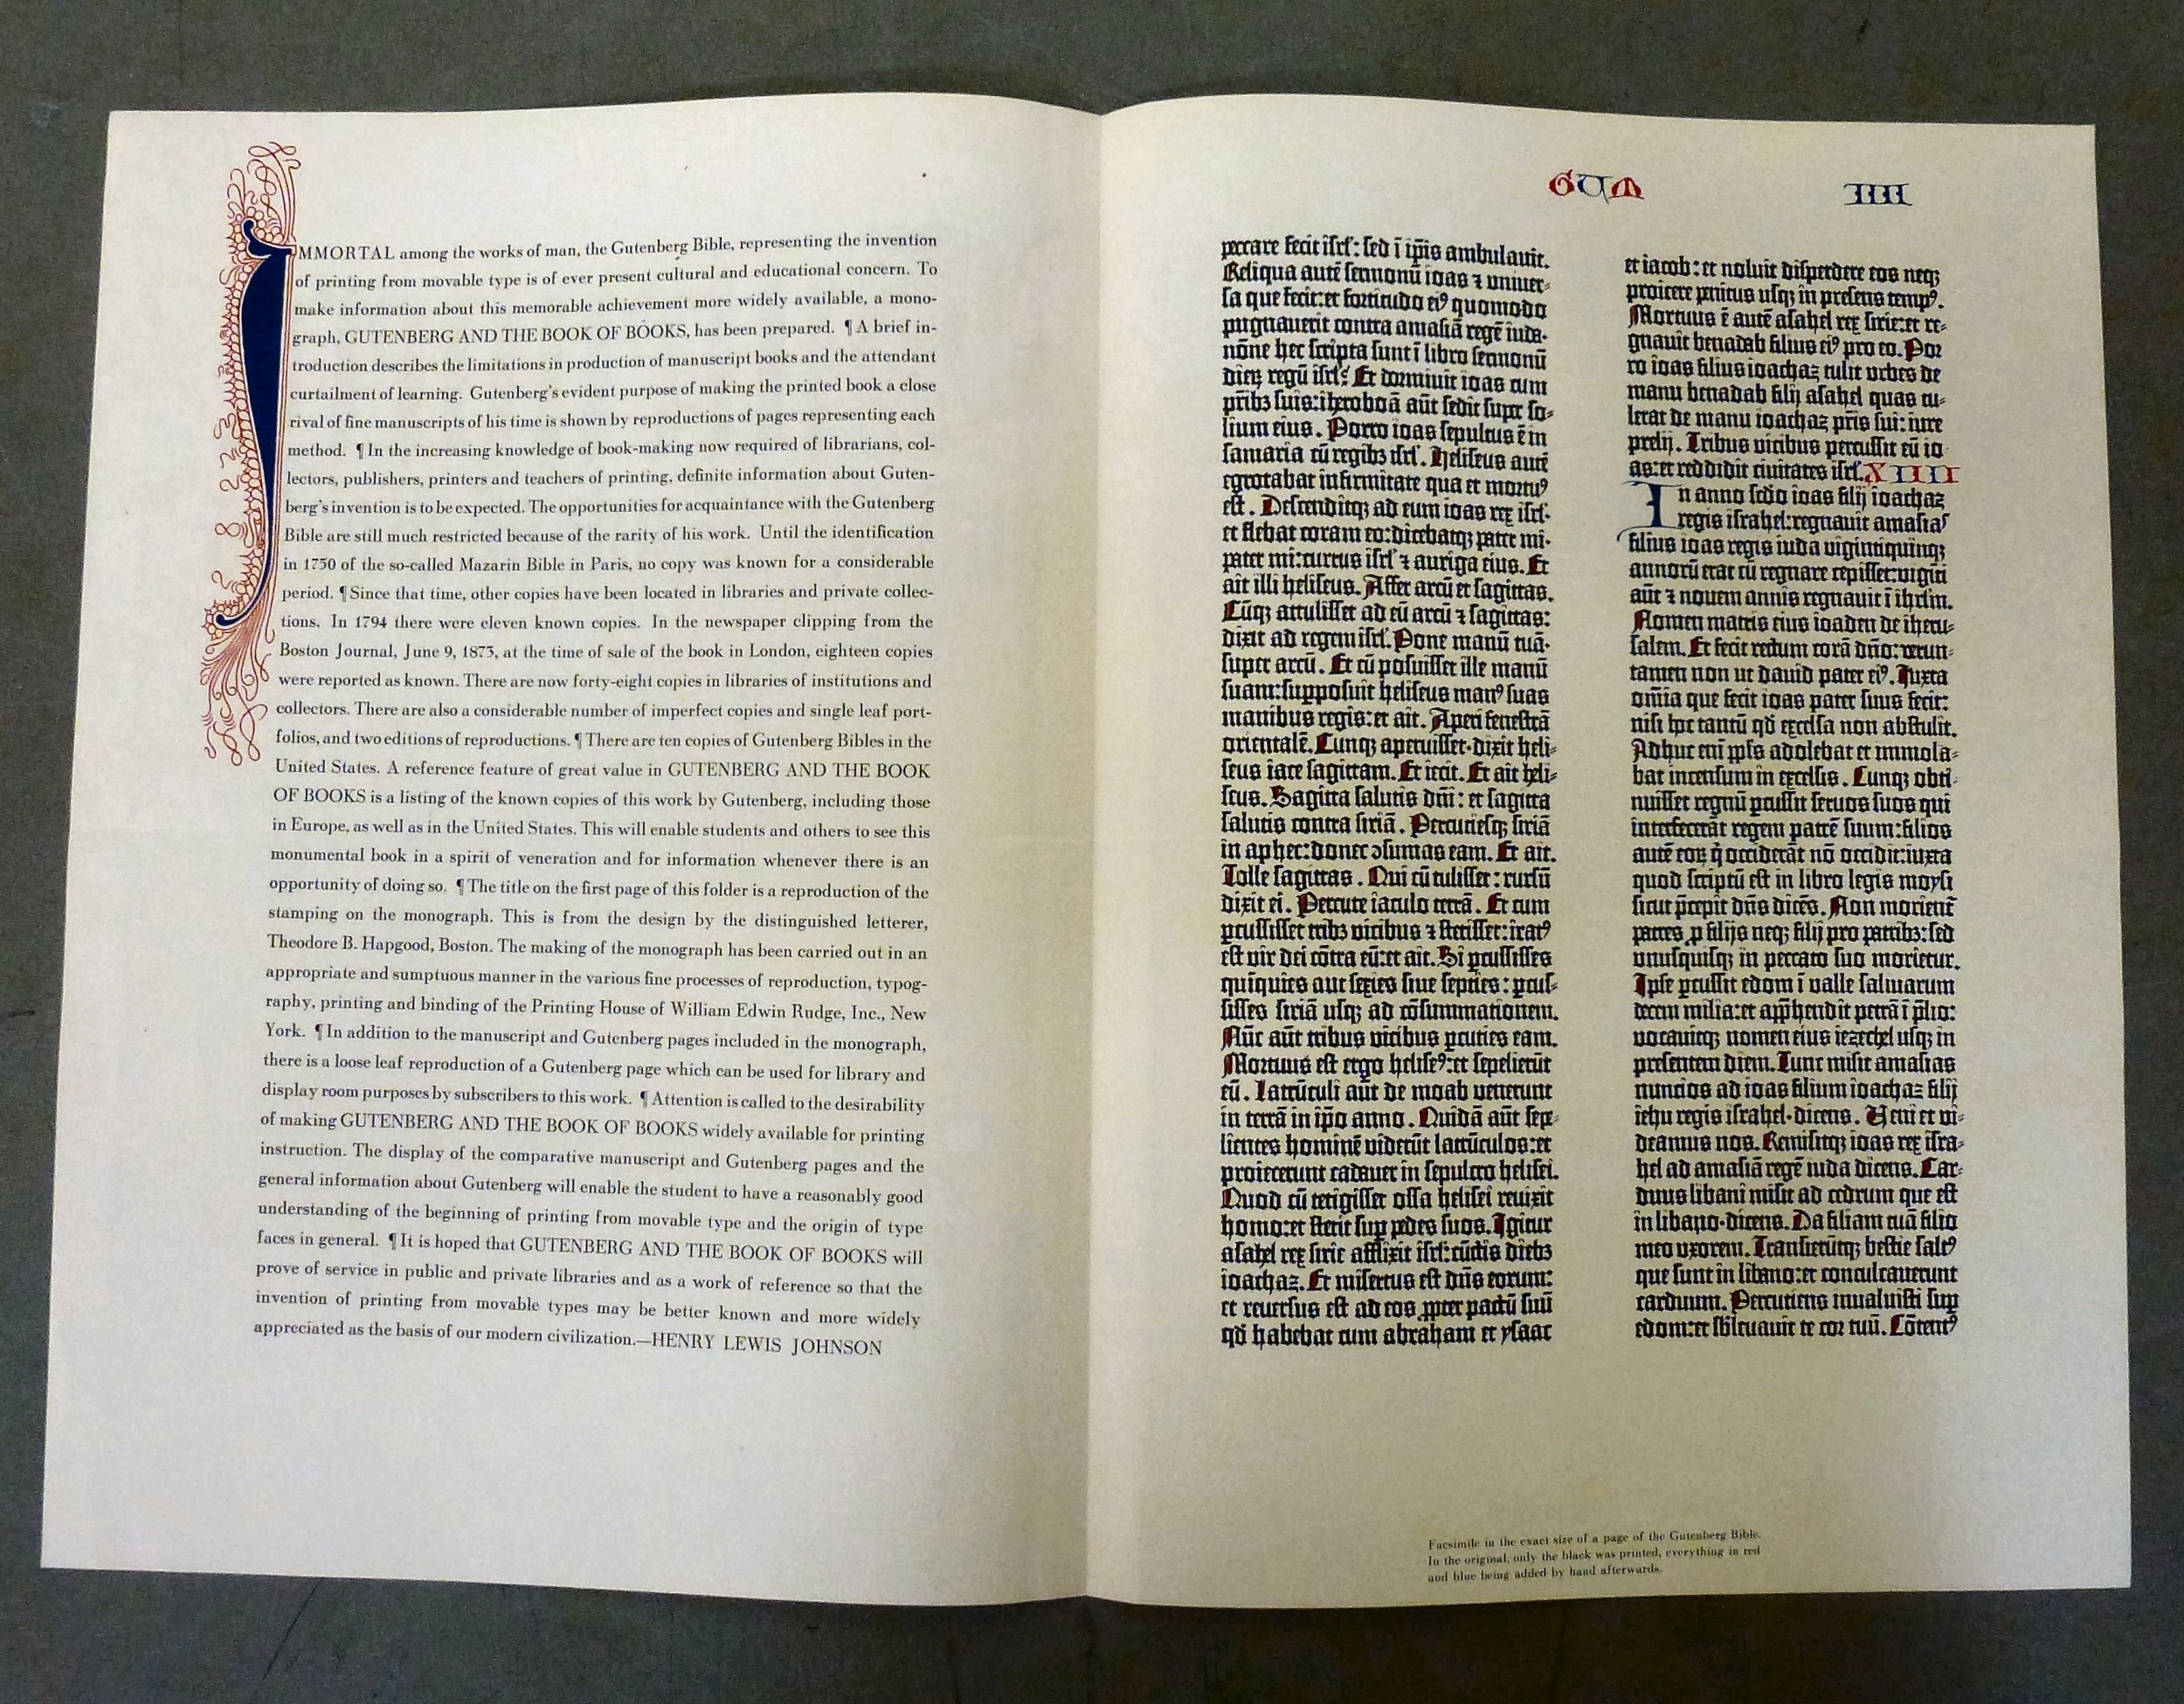 IMMORTAL among the works of man, the Gutenberg Bible, representing the invention
of printing from movable type is of ever present cultural and educational concern. To
make information about this memorable achievement more widely available, a mono-
graph, GUTENBERG AND THE BOOK OF BOOKS, has been prepared. ¶ A brief in-
troduction describes the limitations in production of manuscript books and the attendant
curtailment of learning. Gutenberg's evident purpose of making the printed book a close
rival of fine manuscripts of his time is shown by reproductions of pages representing each
method. ¶ In the increasing knowledge of book-making now required of librarians, col-
lectors, publishers, printers and teachers of printing, definite information about Guten-
berg's invention is to be expected. The opportunities for acquaintance with the Gutenberg
Bible are still much restricted because of the rarity of his work. Until the identification
in 1750 of the so-called Mazarin Bible in Paris, no copy was known for a considerable
period. ¶ Since that time, other copies have been located in libraries and private collec-
tions. In 1794 there were eleven known copies. In the newspaper clipping from the
Boston Journal, June 9, 1873, at the time of sale of the book in London, eighteen copies
were reported as known. There are now forty-eight copies in libraries of institutions and
collectors. There are also a considerable number of imperfect copies and single leaf port-
folios, and two editions of reproductions. ¶ There are ten copies of Gutenberg Bibles in the
United States. A reference feature of great value in GUTENBERG AND THE BOOK
OF BOOKS is a listing of the known copies of this work by Gutenberg, including those
in Europe, as well as in the United States. This will enable students and others to see this
monumental book in a spirit of veneration and for information whenever there is an
opportunity of doing so. ¶ The title on the first page of this folder is a reproduction of the
stamping on the monograph. This is from the design by the distinguished letterer,
Theodore B. Hapgood, Boston. The making of the monograph has been carried out in an
appropriate and sumptuous manner in the various fine processes of reproduction, typog-
raphy, printing and binding of the Printing House of William Edwin Rudge, Inc., New
York. ¶ In addition to the manuscript and Gutenberg pages included in the monograph,
there is a loose leaf reproduction of a Gutenberg page which can be used for library and
display room purposes by subscribers to this work. ¶ Attention is called to the desirability
of making GUTENBERG AND THE BOOK OF BOOKS widely available for printing
instruction. The display of the comparative manuscript and Gutenberg pages and the
general information about Gutenberg will enable the student to have a reasonably good
understanding of the beginning of printing from movable type and the origin of type
faces in general. ¶ It is hoped that GUTENBERG AND THE BOOK OF BOOKS will
prove of service in public and private libraries and as a work of reference so that the
invention of printing from movable types may be better known and more widely
appreciated as the basis of our modern civilization.—HENRY LEWIS JOHNSON
GUM IIII
peccare fecit iſrl': sed ī ip̄is ambulauit.
Reliqua autē ſermonū ioas ⁊ vniuer-
ſa que fecit: et fortitudo ei⁹ quomodo
pugnauerit contra amaſiā regē iuda·
nōne hec ſcripta ſunt ī libro ſermonū
dieꝝ regū iſrl'? Et dormiuit ioas cum
pr̄ibꝫ ſuis: iheroboā aūt ſedit ſuper ſo-
lium eius. Porro ioas ſepultus ē in
ſamaria cū regibꝫ iſrl'. Heliſeus autē
egrotabat infirmitate qua et mortu⁹
eſt. Deſcenditqꝫ ad eum ioas rex iſrl'·
et flebat coram eo: dicebatqꝫ pater mi·
pater mi: currus iſrl' ⁊ auriga eius. Et
ait illi heliſeus. Affer arcū et ſagittas.
Cūqꝫ attuliſſet ad eū arcū ⁊ ſagittas:
dixit ad regem iſrl'. Pone manū tuā·
ſuper arcū. Et cū poſuiſſet ille manū
ſuam: ſuppoſuit heliſeus man⁹ ſuas
manibus regis: et ait. Aperi feneſtrā
orientalē. Cunqꝫ aperuiſſet·dixit heli-
ſeus iace ſagittam. Et iecit. Et ait heli-
ſeus. Sagitta ſalutis dn̄i: et ſagitta
ſalutis contra ſiriā. Percutieſqꝫ ſiriā
in aphec: donec ↄſumas eam. Et ait.
Tolle ſagittas. Qui cū tuliſſet: rurſū
dixit ei. Percute iaculo terrā. Et cum
ꝑcuſſiſſet tribꝫ vicibus ⁊ ſtetiſſet: irat⁹
eſt vir dei cōtra eū: et ait. Si ꝑcuſſiſſes
quīquies aut ſexies ſiue ſepties: ꝑcuſ-
ſiſſes ſiriā uſqꝫ ad cōſummationem.
Nūc aūt tribus vicibus ꝑcuties eam.
Mortuus eſt ergo heliſe⁹: et ſepelierūt
eū. Latrūculi aūt de moab venerunt
in terrā in ip̄o anno. Quidā aūt ſepe-
lientes hominē viderūt latrūculos: et
proiecerunt cadauer in ſepulcro heliſei.
Quod cū tetigiſſet oſſa heliſei reuixit
homo: et ſtetit ſup̄ pedes ſuos. Igitur
aſahel rex ſirie afflixit iſrl': cūctis diebꝫ
ioachaz. Et miſertus eſt dn̄s eorum:
et reuerſus eſt ad eos ꝓpter pactū ſuū
qd̄ habebat cum abraham et yſaac
et iacob: et noluit diſperdere eos neqꝫ
proicere penitus uſqꝫ in preſens temp⁹.
Mortuus ē autē aſahel rex ſirie: et re-
gnauit benadab filius ei⁹ pro eo. Por
ro ioas filius ioachaz tulit vrbes de
manu benadab filij aſahel quas tu-
lerat de manu ioachaz pr̄is ſui: iure
prelij. Tribus vicibus percuſſit eū io
as: et reddidit ciuitates iſrl'. XIIII
In anno ſcd̄o ioas filij ioachaz
regis iſrahel: regnauit amaſias
filius ioas regis iuda vigintiquinqꝫ
annorū erat cū regnare cepiſſet: vigīti
aūt ⁊ nouem annis regnauit ī ihrlm̄.
Nomen matris eius ioaden de iheru-
ſalem. Et fecit rectum corā dn̄o: verun-
tamen non ut dauid pater ei⁹. Iuxta
om̄ia que fecit ioas pater ſuus fecit:
niſi hoc tantū qd̄ excelſa non abſtulit.
Adhuc eni pp̄ls adolebat et immola-
bat incenſum in excelſis. Cunqꝫ obti-
nuiſſet regnū ꝑcuſſit ſeruos ſuos qui
interfecerāt regem patrē ſuum: filios
autē eoꝝ q̇ occiderāt nō occidit: iuxta
quod ſcriptū eſt in libro legis moyſi
ſicut p̄cepit dn̄s dicēs. Non morient᷑
patres ꝓ filijs neqꝫ filij pro patribꝫ: ſed
vnuſquiſqꝫ in peccato ſuo morietur.
Ipſe ꝑcuſſit edom ī valle ſalinarum
decem milia: et app̄hendit petrā ī p̄lio:
vocauitqꝫ nomen eius iezechel uſqꝫ in
preſentem diem. Tunc miſit amaſias
nuncios ad ioas filium ioachaz filij
iehu regis iſrahel·dicens. Veni et vi-
deamus nos. Remiſitqꝫ ioas rex iſra-
hel ad amaſiā regē iuda dicens. Car-
duus libani miſit ad cedrum que eſt
in libano·dicens. Da filiam tuā filio
meo vxorem. Tranſierūtqꝫ beſtie ſalt⁹
que ſunt in libano: et conculcauerunt
carduum. Percutiens inualuiſti ſup̄
edom: et ſb̄leuauit te cor tuū. Cōtent⁹
Facsimile in the exact size of a page of the Gutenberg Bible.
In the original, only the black was printed, everything in red
and blue being added by hand afterwards.